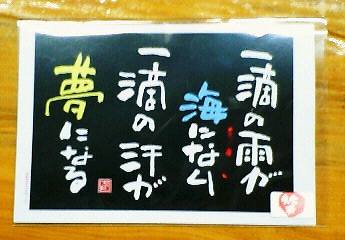 一滴の雨が
海になり
一滴の汗が
夢になる